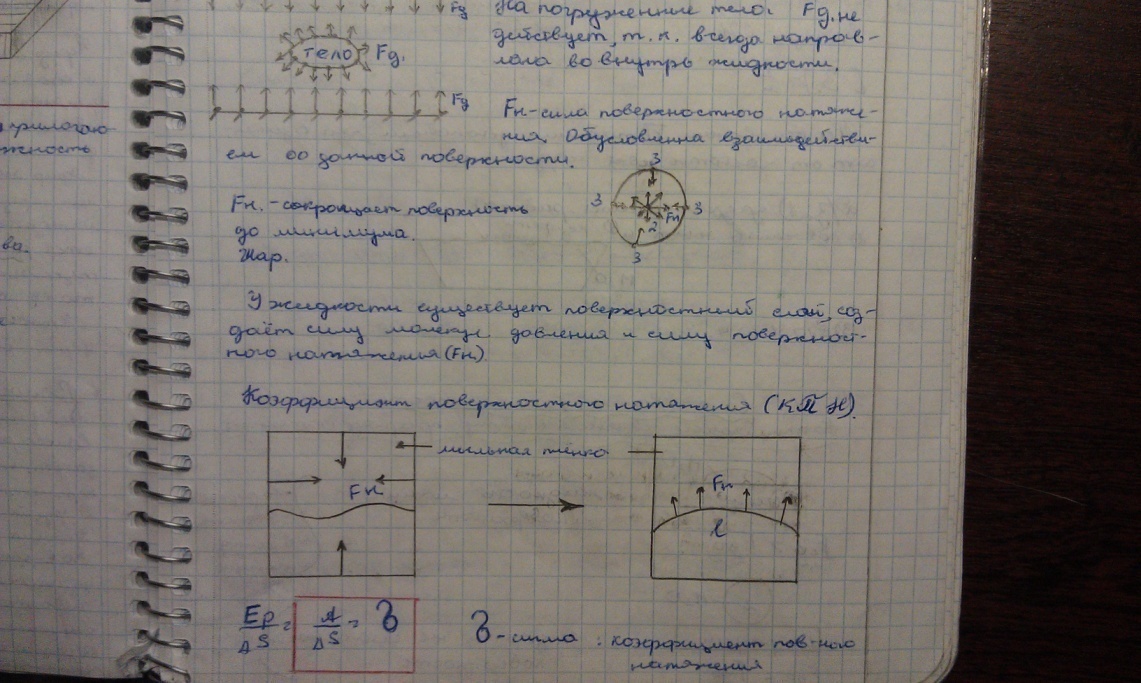 Fд
На погруженные тело: Fд. не
действует, т.к. всегда направ-
тело Fд.
лала во внутрь жидкости.
Fд
Fн-сила поверхностного натяже-
ния. Обусловленна взаимодействи-
прилегаю-
ем со
поверхности.
Fн. -сокращает поверхность
до минимума.
Жар.
3
3
3
Fн
2
3
ва.
У жидкости существует поверхностный слой, соз-
даёт силу молекул. давления и силу поверхност-
ного натяжения (Fн)
Коэффициент поверхностного натяжения (КПН).
мыльная плёнка
Fн
Fн
l
Ep/ΔS = A/ΔS = δ
δ-сигма : коэффициент пов-ного
натяжения